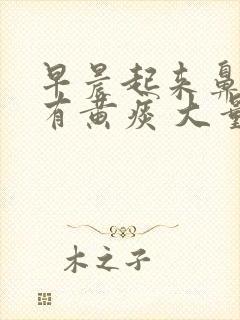 早晨起来鼻
有黄痰大量
木之子